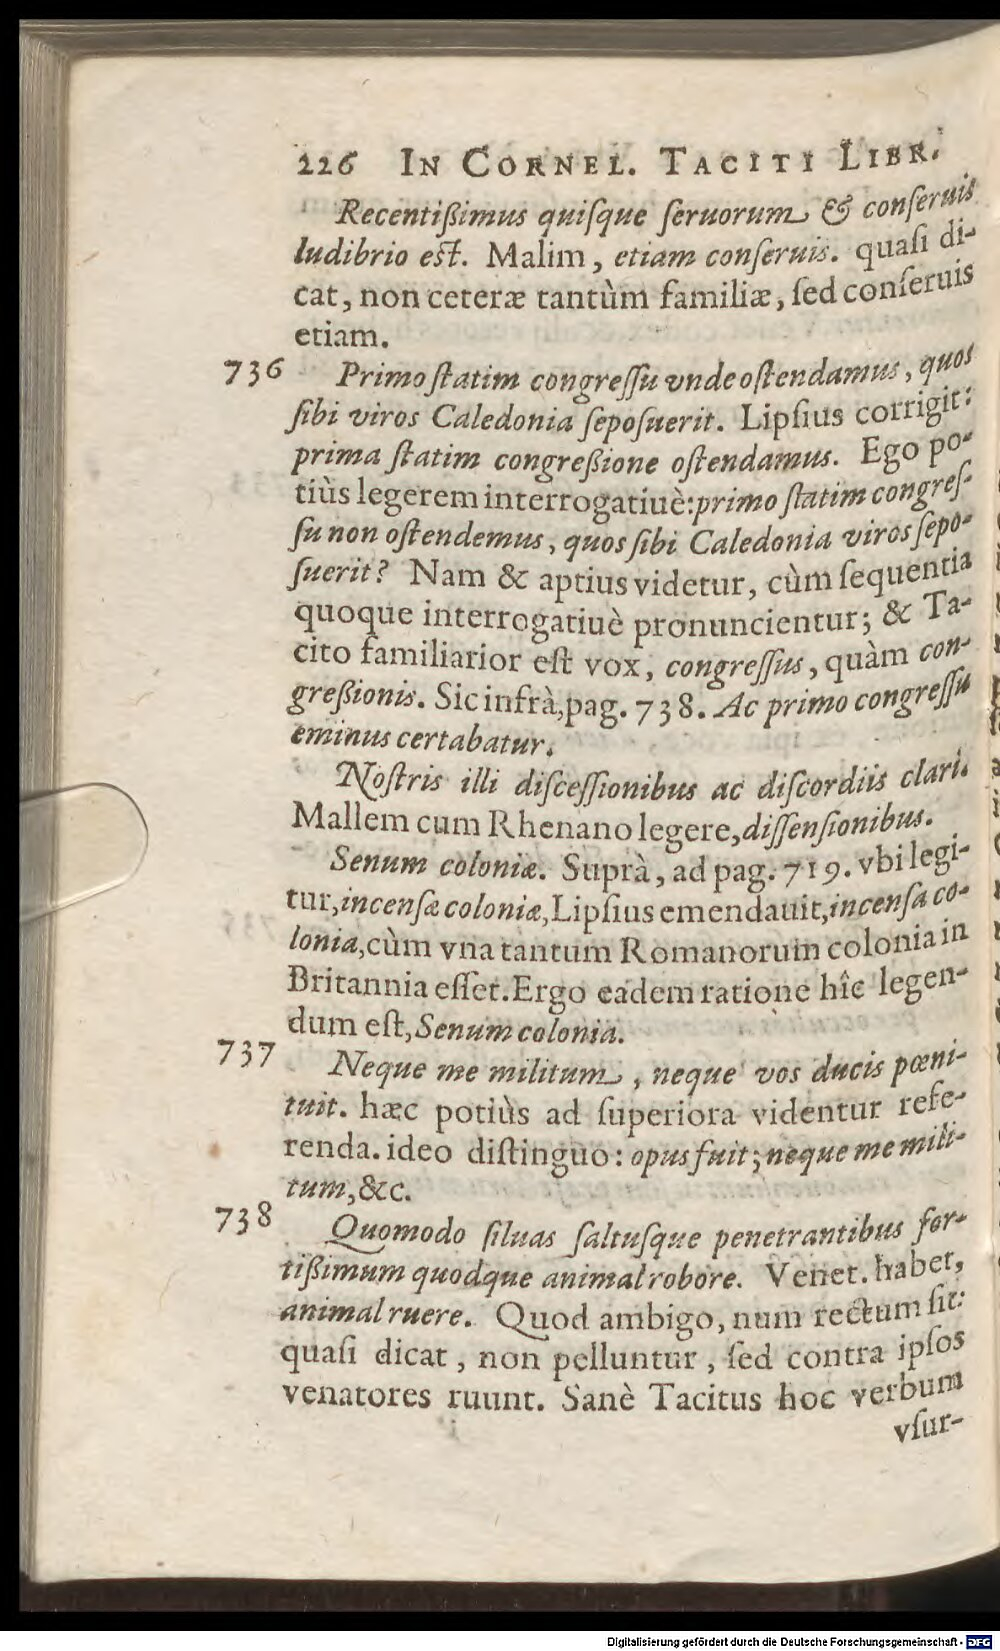 226 IN CORNEL. TACITI LIBR.
Recentißimus quiſque ſeruorum & conſeruis
ludibrio est. Malim, etiam conſeruis. quaſi di-
cat, non ceteræ tantùm familiæ, ſed conſeruis
etiam.
736 Primo ſtatim congreſſu vnde oſtendamus, quos
ſibi viros Caledonia ſepoſuerit. Lipſius corrigit:
prima ſtatim congreßione oſtendamus. Ego po-
tiùs legerem interrogatiuè: primo ſtatim congreſ-
ſu non oſtendemus, quos ſibi Caledonia viros ſepo-
ſuerit? Nam & aptius videtur, cùm ſequentia
quoque interrogatiuè pronuncientur; & Ta-
cito familiarior eſt vox, congreſſus, quàm con-
greßionis. Sic infrà, pag. 738. Ac primo congreſſu
eminus certabatur.
Noſtris illi diſceſſionibus ac diſcordiis clari.
Mallem cum Rhenano legere, diſſenſionibus.
Senum coloniæ. Suprà, ad pag. 719. vbi legi-
tur, incenſæ coloniæ, Lipſius emendauit, incenſa co-
lonia, cùm vna tantum Romanorum colonia in
Britannia eſſet. Ergo eadem ratione hîc legen-
dum eſt, Senum colonia.
737 Neque me militum, neque vos ducis pœni-
tuit. hæc potiùs ad ſuperiora videntur refe-
renda. ideo diſtinguo: opus fuit; neque me mili-
tum, &c.
738 Quomodo ſiluas ſaltuſque penetrantibus for-
tißimum quodque animal robore. Venet. habet,
animal ruere. Quod ambigo, num rectum ſit:
quaſi dicat, non pelluntur, ſed contra ipſos
venatores ruunt. Sanè Tacitus hoc verbum
vſur-
Digitalisierung gefördert durch die Deutsche Forschungsgemeinschaft - DFG